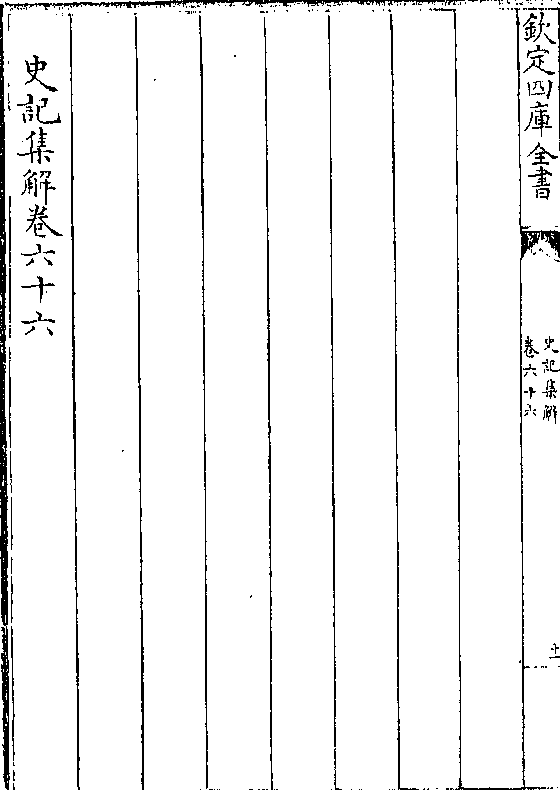 欽定四庫全書
史記集解
卷六十六
十一
史記集解卷六十六